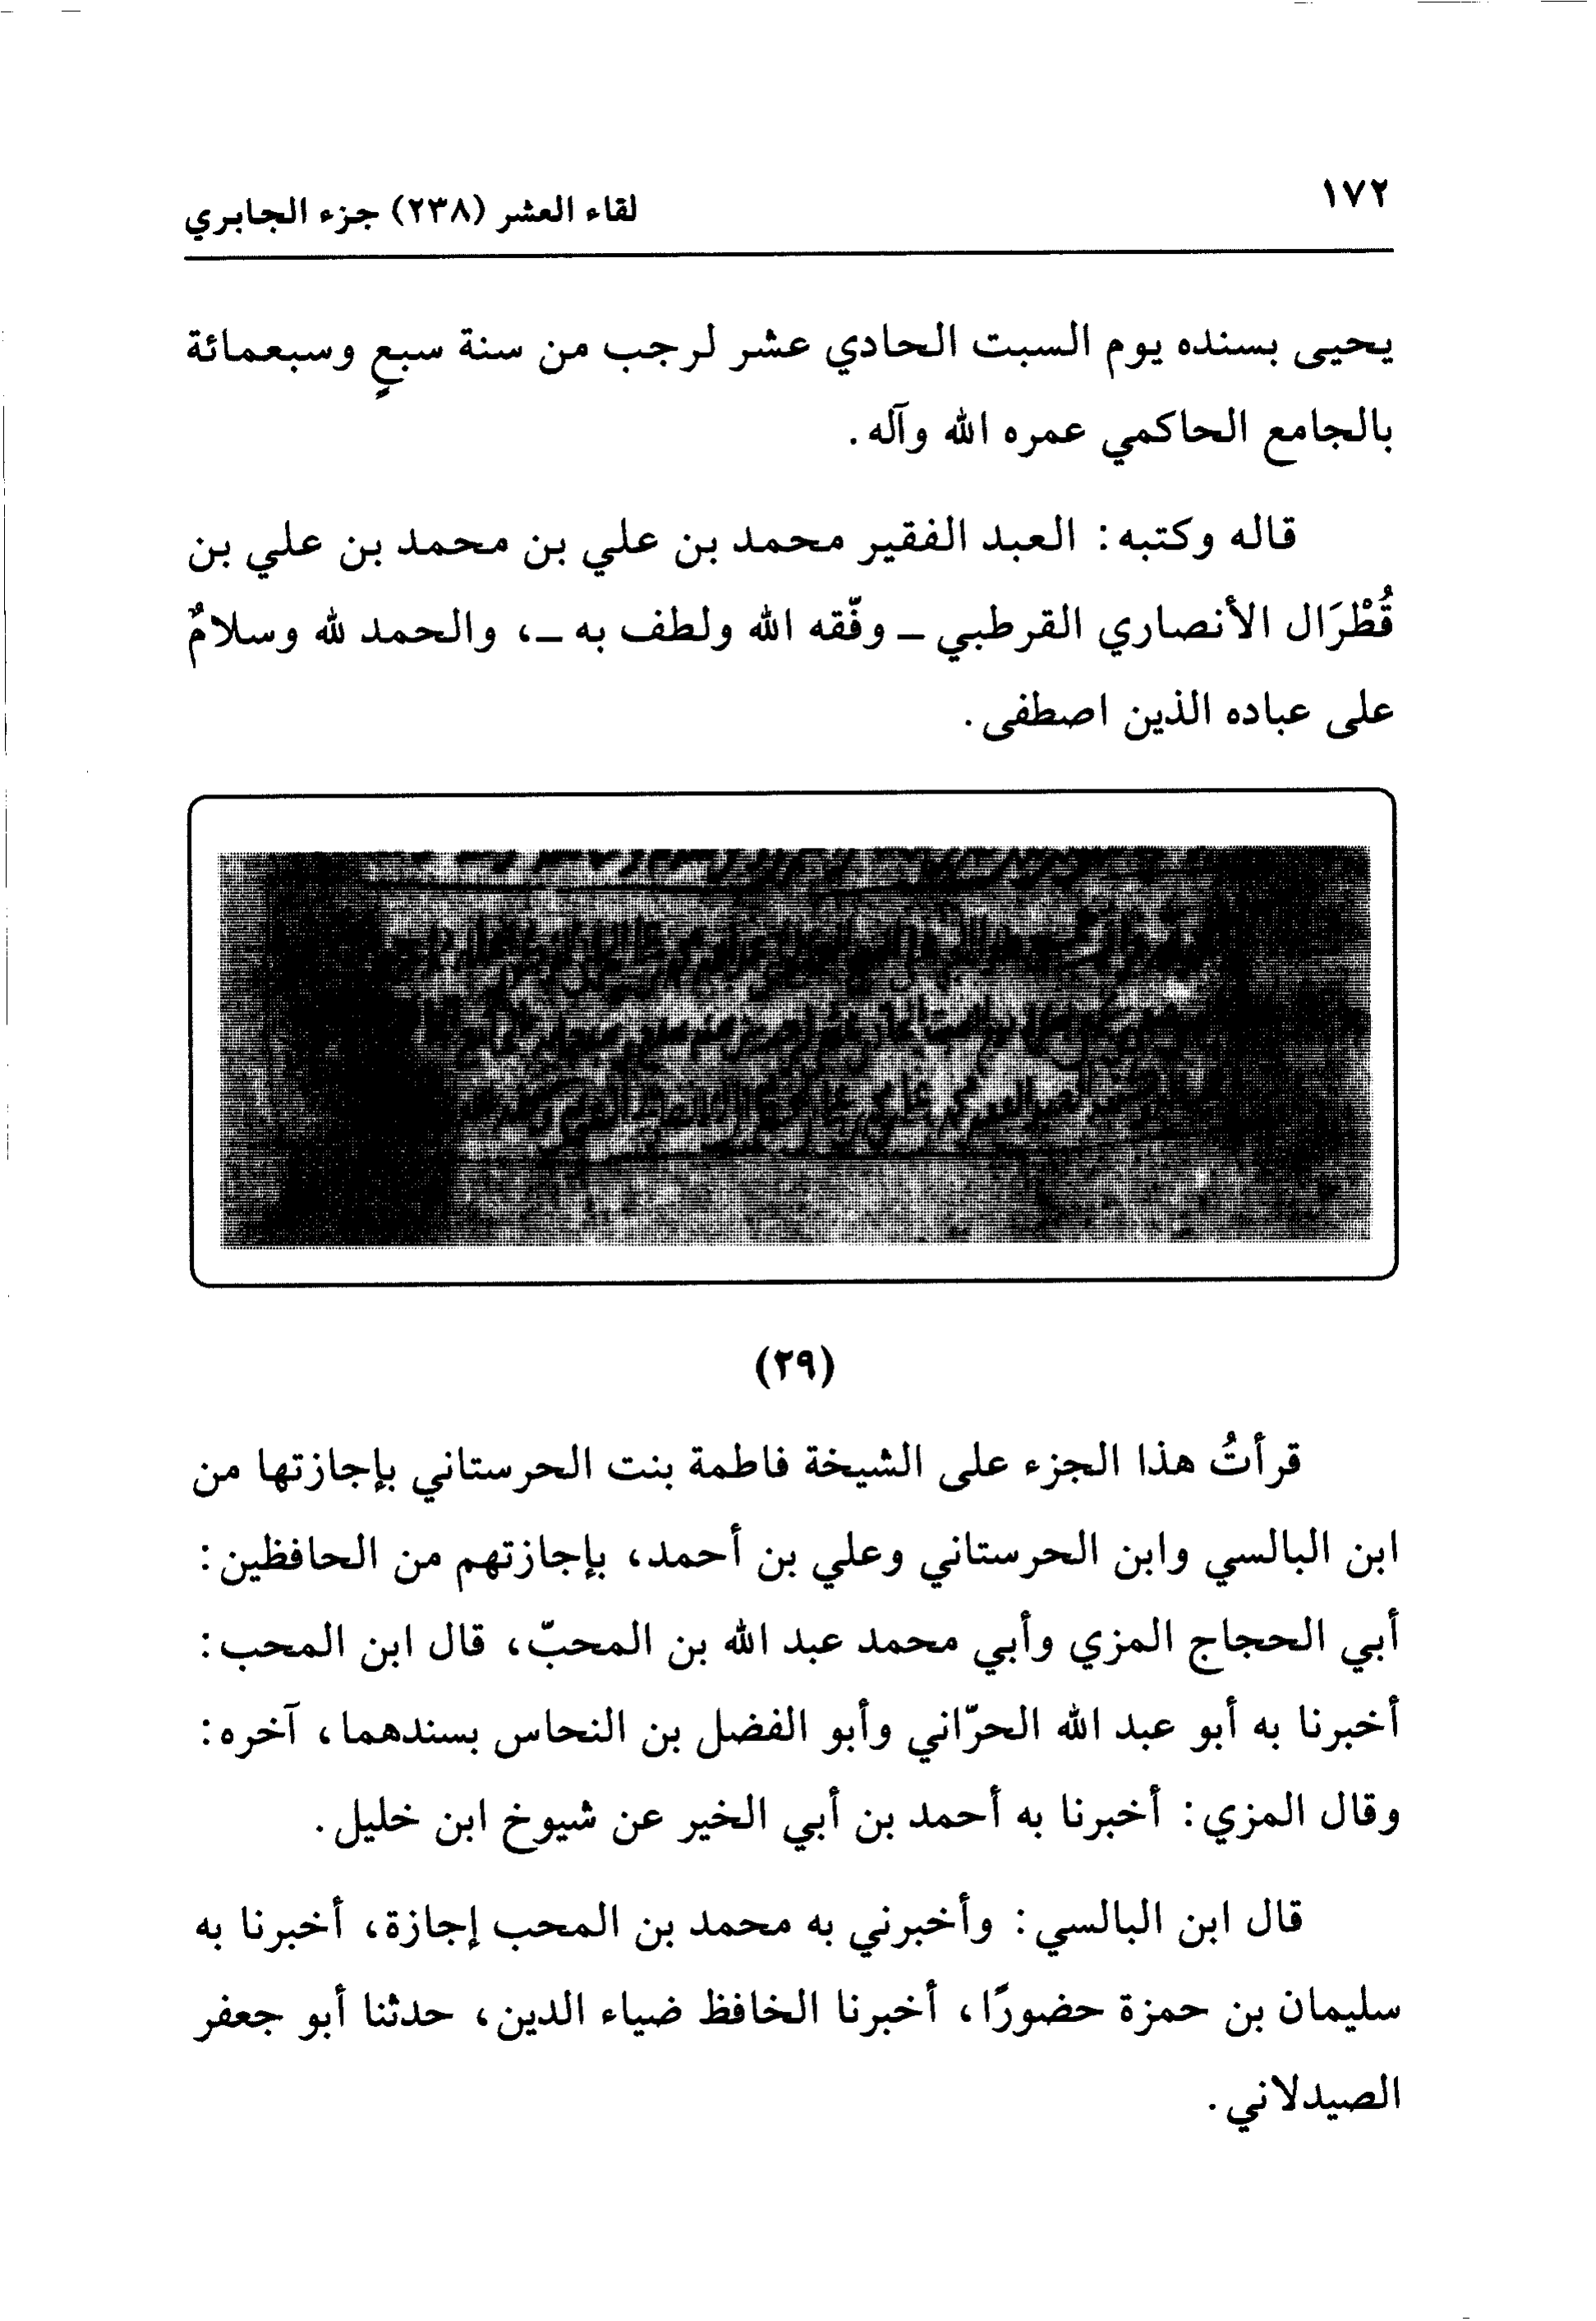 ١٧٢
لقاء العشر (٢٣٨) جزء الجابري
يحيى بسنده يوم السبت الحادي عشر لرجب من سنة سبعٍ وسبعمائة
بالجامع الحاكمي عمره الله وآله.
قاله وكتبه: العبد الفقير محمد بن علي بن محمد بن علي بن
قُطْرَال الأنصاري القرطبي - وفّقه الله ولطف به -، والحمد لله وسلامٌ
على عباده الذين اصطفى.
(٢٩)
قرأتُ هذا الجزء على الشيخة فاطمة بنت الحرستاني بإجازتها من
ابن البالسي وابن الحرستاني وعلي بن أحمد، بإجازتهم من الحافظين:
أبي الحجاج المزي وأبي محمد عبد الله بن المحبّ، قال ابن المحب:
أخبرنا به أبو عبد الله الحرّاني وأبو الفضل بن النحاس بسندهما، آخره:
وقال المزي: أخبرنا به أحمد بن أبي الخير عن شيوخ ابن خليل.
قال ابن البالسي: وأخبرني به محمد بن المحب إجازة، أخبرنا به
سليمان بن حمزة حضورًا، أخبرنا الخافظ ضياء الدين، حدثنا أبو جعفر
الصيدلاني.